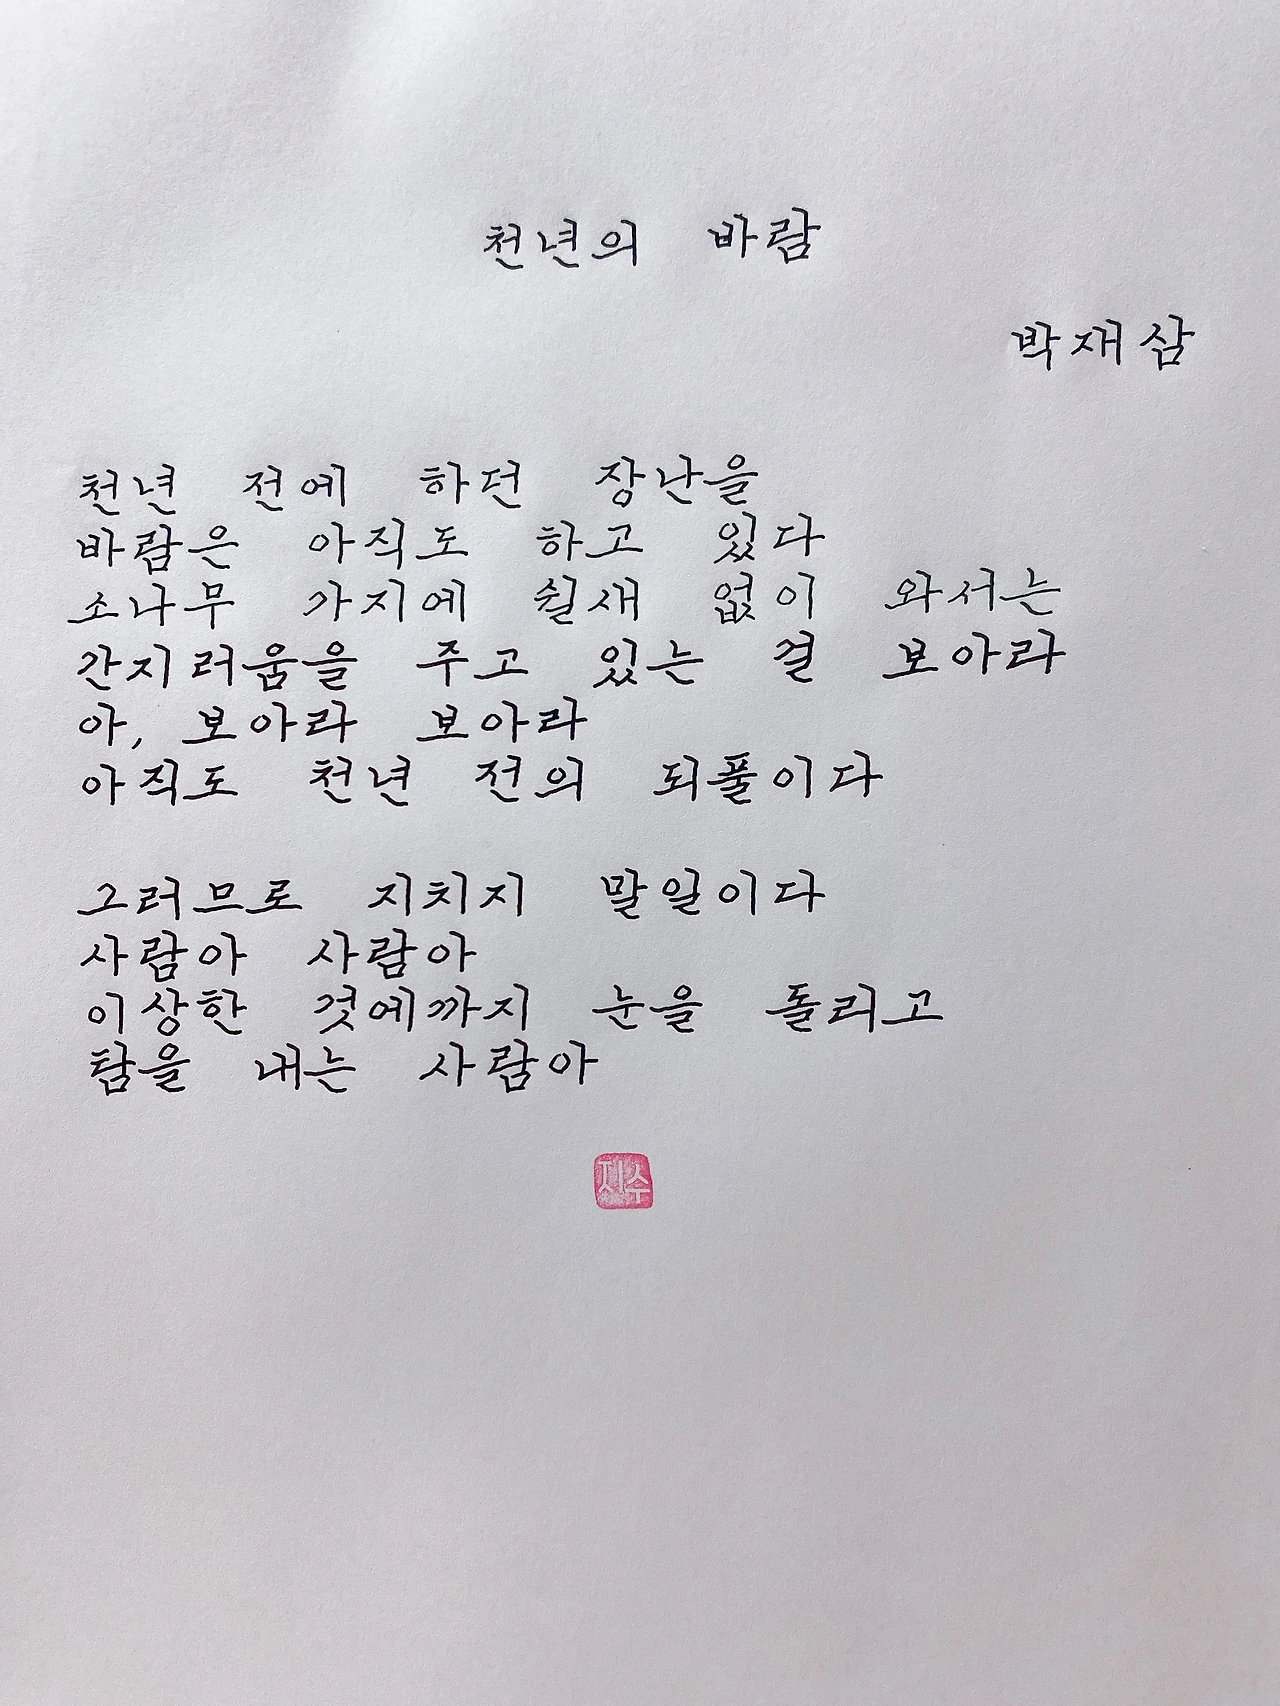 천년의 바람
박재삼
천년 전에 하던 장난을
바람은 아직도 하고 있다
소나무 가지에 쉴새 없이 와서는
간지러움을 주고 있는 걸 보아라
아, 보아라 보아라
아직도 천년 전의 되풀이다
그러므로 지치지 말일이다
사람아 사람아
이상한 것에까지 눈을 돌리고
탐을 내는 사람아
지수